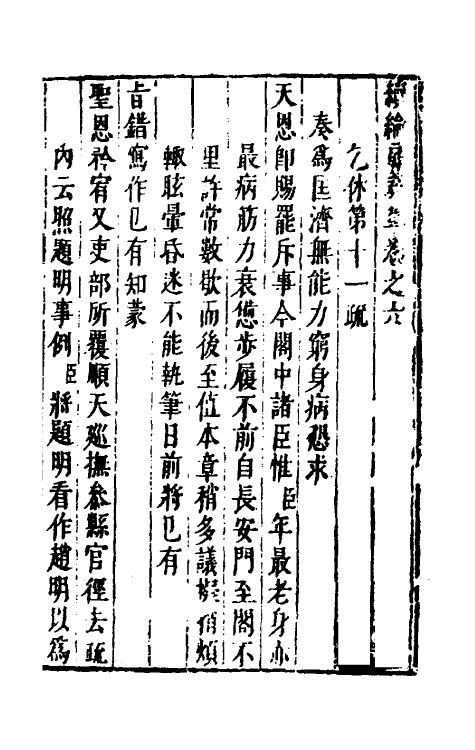 綸扉奏草卷之六
乞休第十一疏
奏爲匡濟無能力窮身病懇求
天恩卽賜罷斥事今閣中諸臣惟臣年最老身亦
最病筋力衰憊步履不前自長安門至閣不
里許常數歇而後至值本章稍多議擬稍煩
輙眩暈昏迷不能執筆日前將已有
旨錯寫作已有知蒙
聖恩矜宥又吏部所覆順天廵撫叅縣官徑去疏
內云照題明事例臣將題明看作趙明以爲